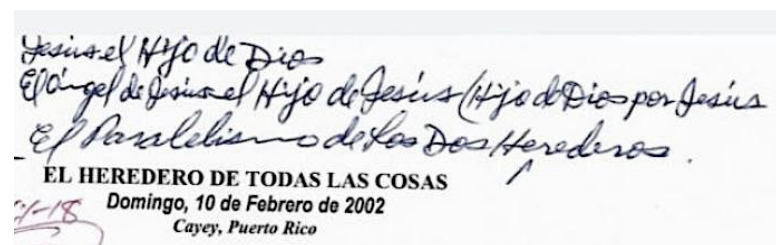 Jesús el Hijo de Dios
El Ángel de Jesús el Hijo de Jesús (Hijo de Dios por Jesús
El Paralelismo de Los Dos Herederos.
EL HEREDERO DE TODAS LAS COSAS
Domingo, 10 de Febrero de 2002
-18
Cayey, Puerto Rico